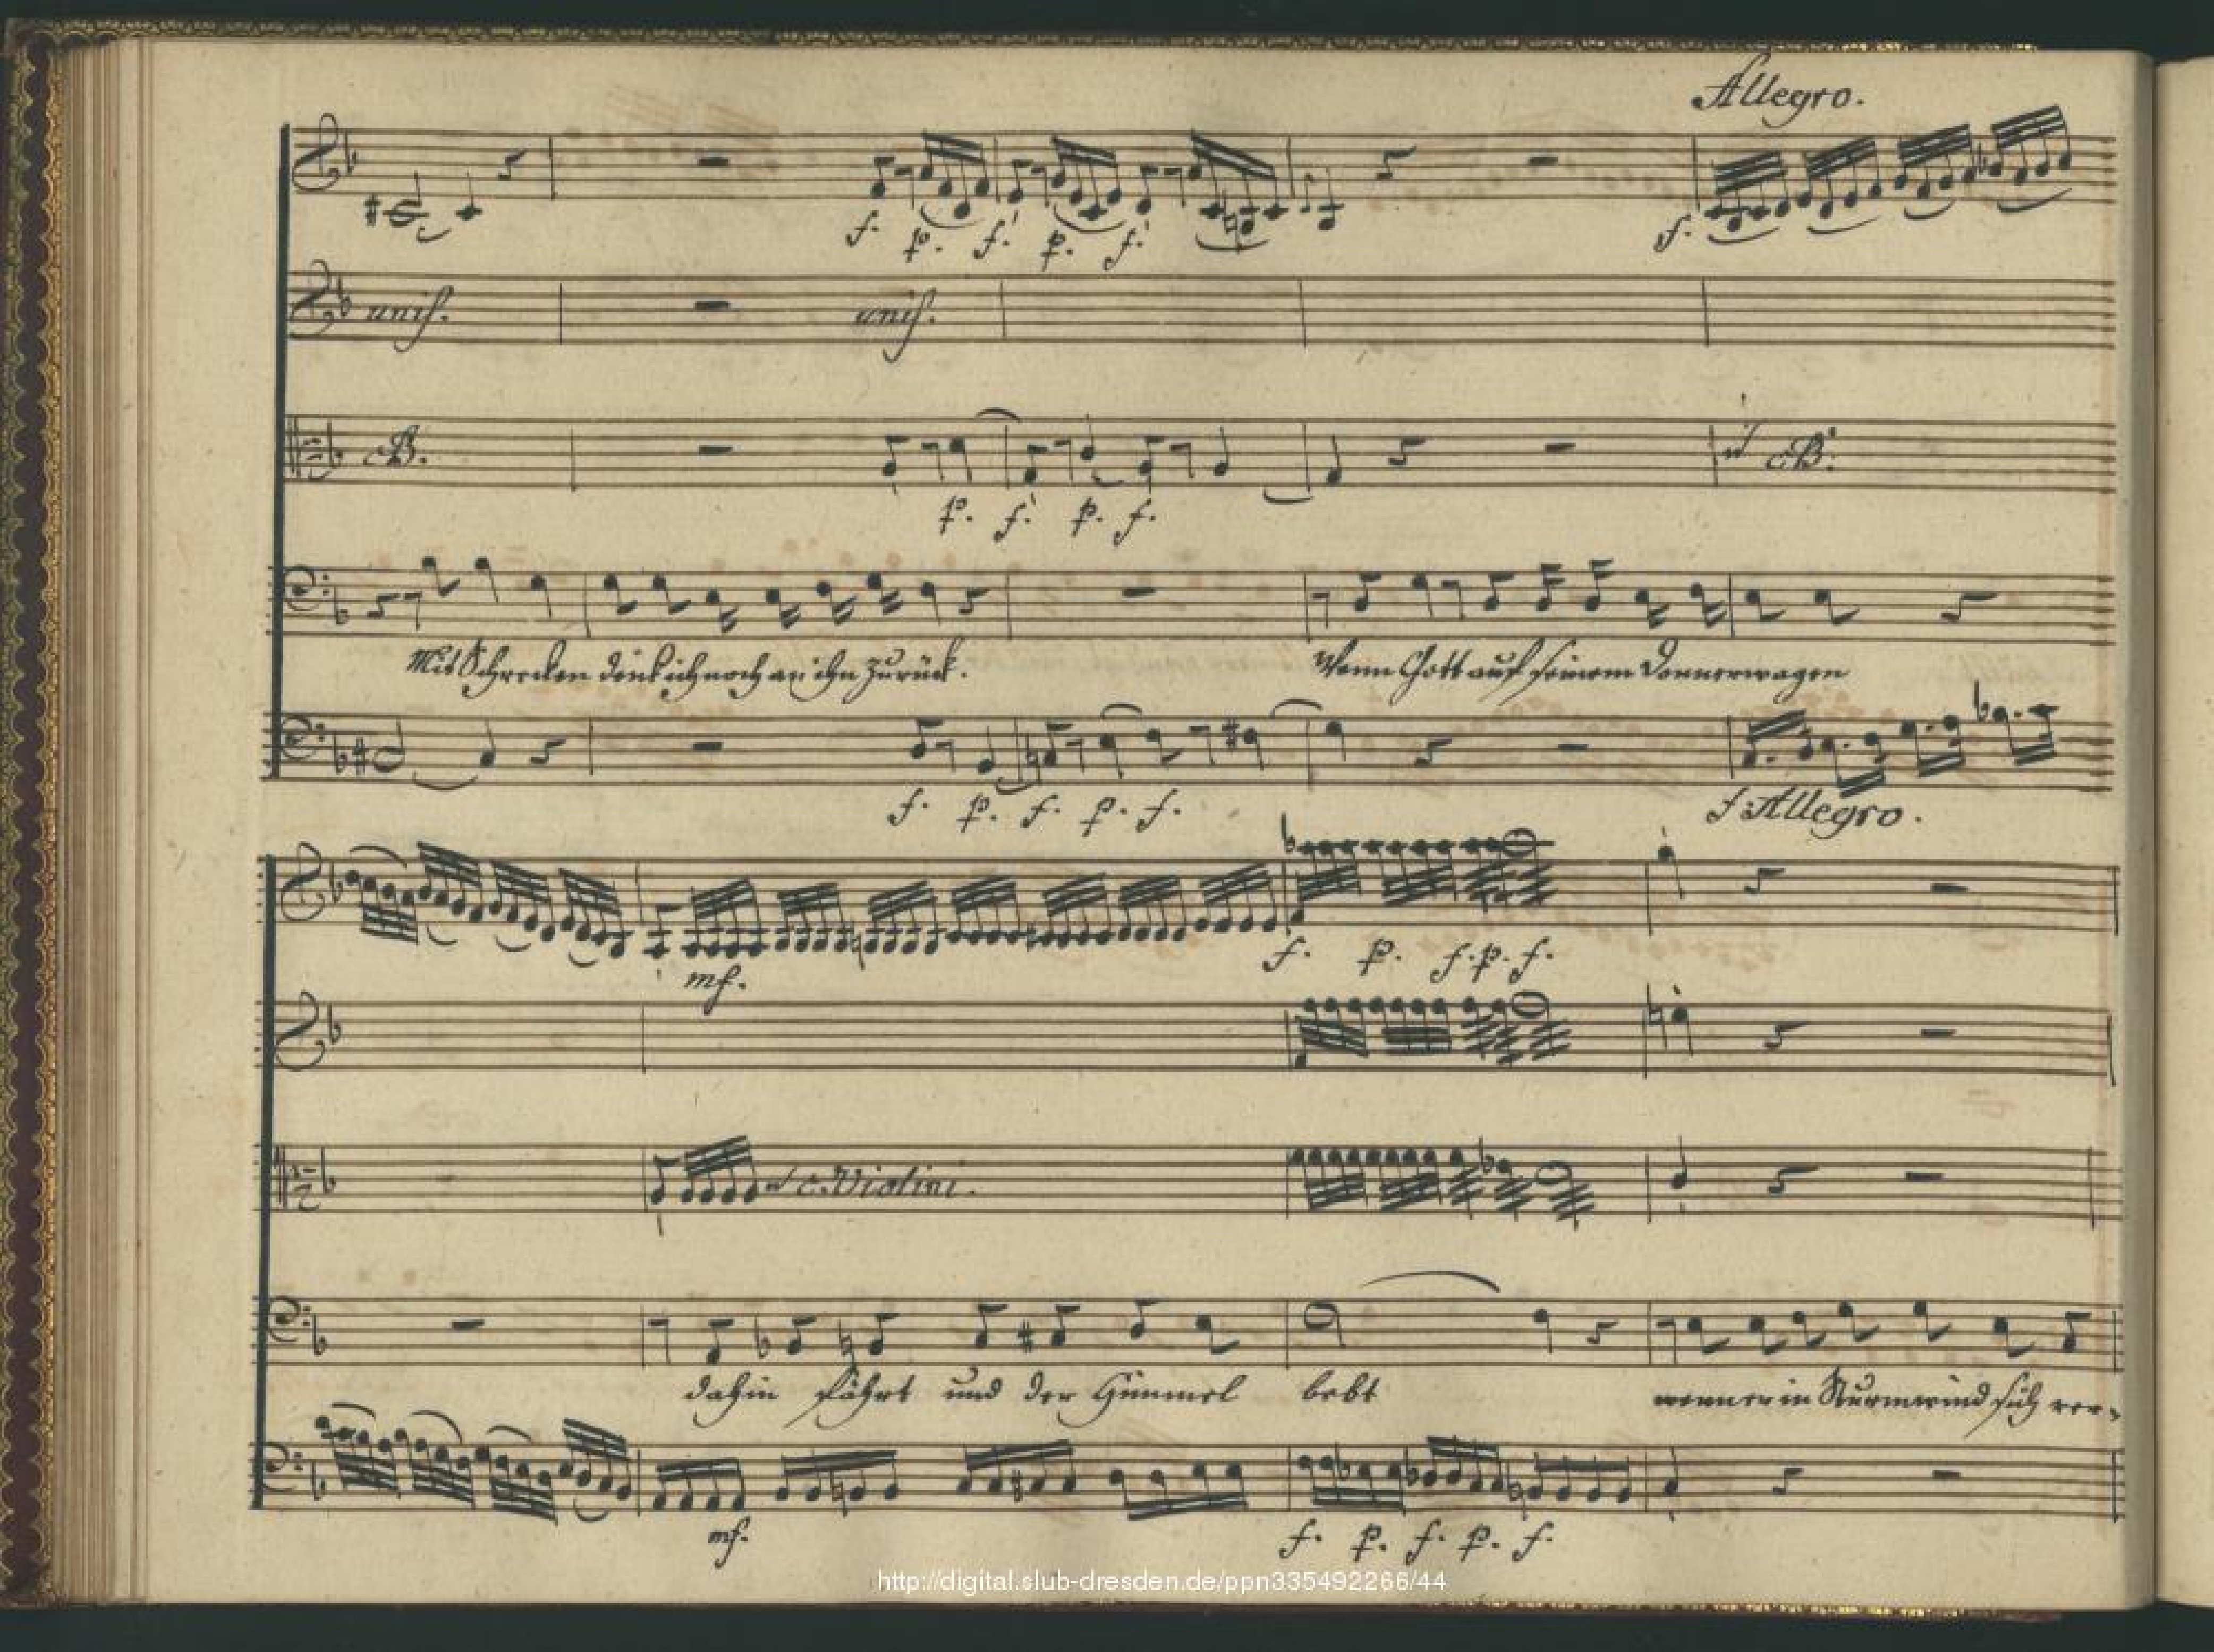 Allegro.
f. p. f. p. f. f.
unis. unis.
cB. cB.
p. f. p. f.
Mit Schrecken denk ich noch an ihn zurück. Wenn Gott auf seinem Donnerwagen
f. p. f. p. f. f Allegro.
mf. f. p. f. p. f.
c. Violini.
dahin fährt und der Himmel bebt wenn er in Sturmwind sich ver-
mf. f. p. f. p. f.
http://digital.slub-dresden.de/ppn335492266/44